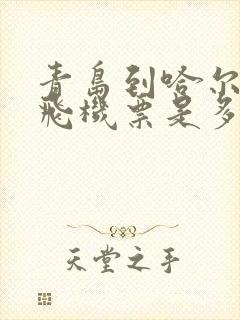 青島到哈尔
飛機票是多
天堂之手